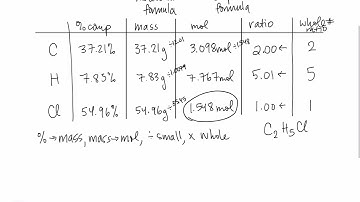 formula formula
% comp mass mol ratio whole # ratio
C 37.21% 37.21g ÷12.01 3.098mol ÷1.548 2.00 ← 2
H 7.83% 7.83g ÷1.0079 7.767mol 5.01 ← 5
Cl 54.96% 54.96g ÷35.45 1.548mol 1.00 ← 1
% → mass, mass → mol, ÷ small, x whole C2H5Cl